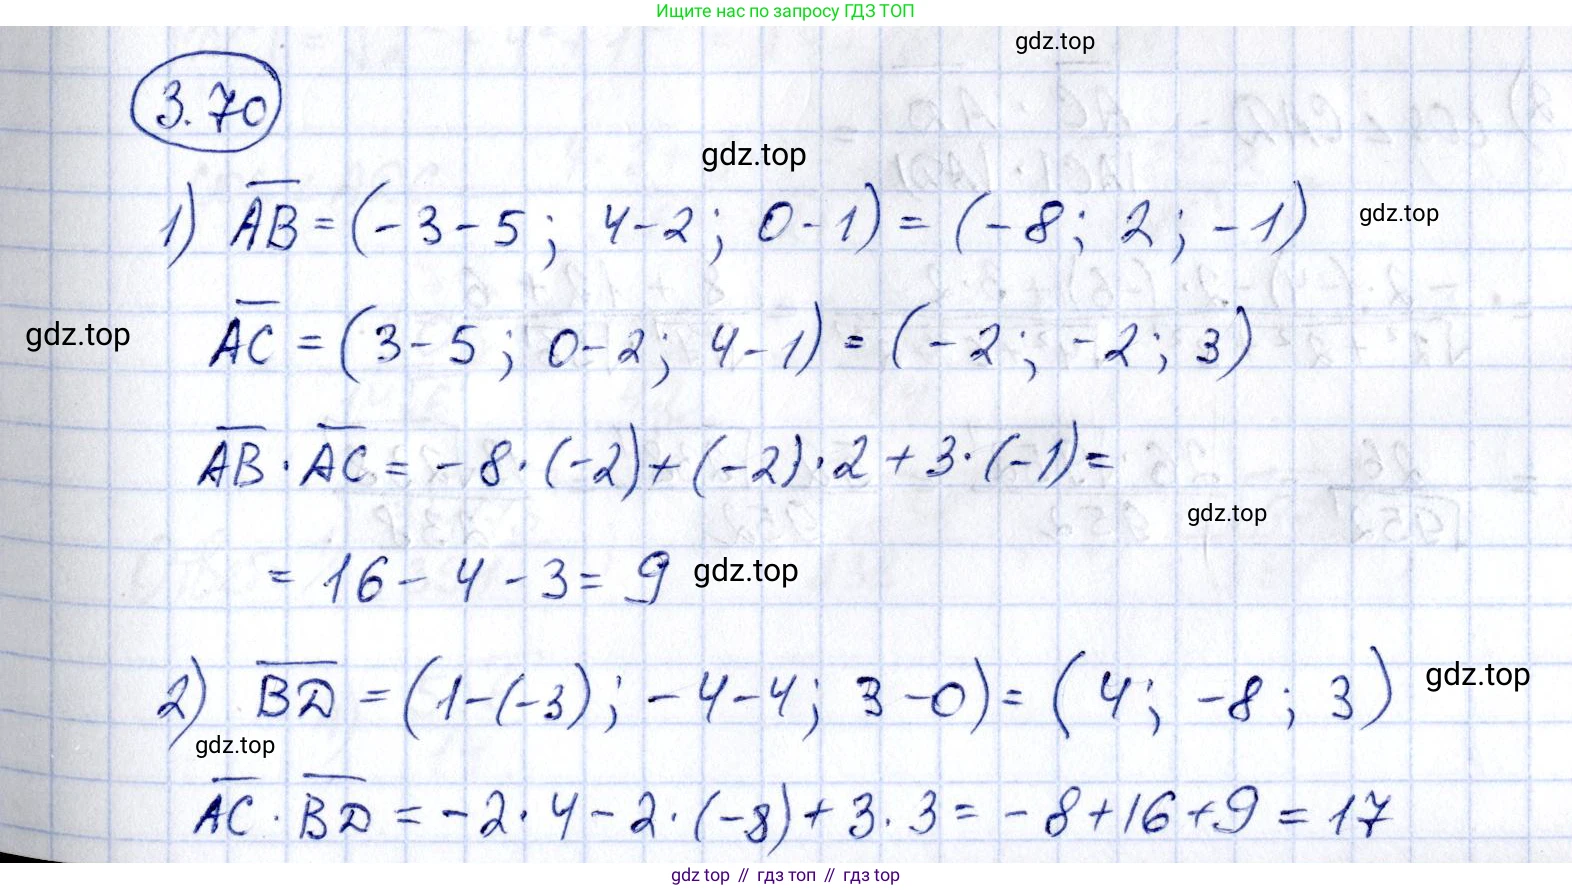 Ищите нас по запросу ГДЗ ТОП
gdz.top
3.70
gdz.top
1) AB = (-3-5; 4-2; 0-1) = (-8; 2; -1)
gdz.top
gdz.top
AC = (3-5; 0-2; 4-1) = (-2; -2; 3)
AB · AC = -8·(-2)+(-2)·2+3·(-1)=
gdz.top
= 16-4-3= 9
gdz.top
2) BD = (1-(-3); -4-4; 3-0) = (4; -8; 3)
gdz.top
gdz.top
AC · BD = -2·4-2·(-8)+3·3= -8+16+9 = 17
gdz top // гдз топ // гдз top